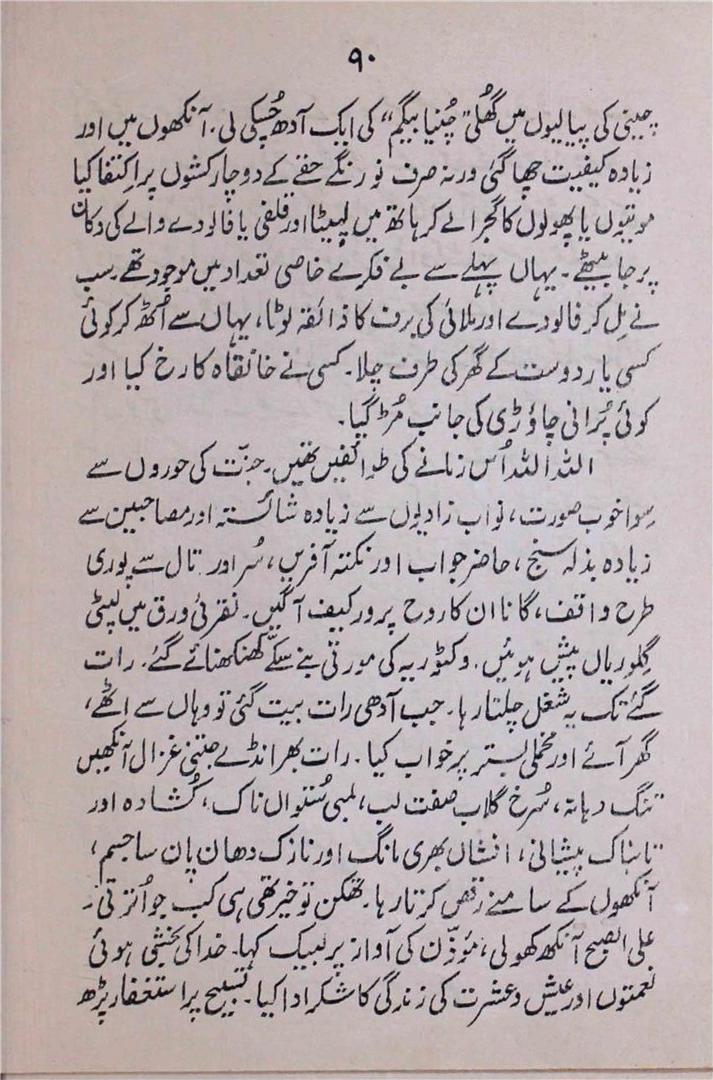 ۹۰
چینی کی پیالیوں میں گھُلی "چُنیا بیگم" کی ایک آدھ چُسکی لی۔ آنکھوں میں اور
زیادہ کیفیت چھا گئی ورنہ صرف نورنگے حقے کے دو چار کشوں پر اکتفا کیا
موتیوں یا پھولوں کا گجرا لے کر ہاتھ میں لپیٹا اور قلفی یا فالودے والے کی دکان
پر جا بیٹھے۔ یہاں پہلے سے بے فکرے خاصی تعداد میں موجود تھے۔ سب
نے مِل کر فالودے اور ملائی کی برف کا ذائقہ لوٹا، یہاں سے اُٹھ کر کوئی
کسی یار دوست کے گھر کی طرف چلا۔ کسی نے خانقاہ کا رخ کیا اور
کوئی پُرانی چاوڑی کی جانب مُڑ گیا۔
اللہ اللہ اُس زمانے کی طوائفیں تھیں۔ جنّت کی حوروں سے
سِوا خوب صورت، نواب زادیوں سے زیادہ شائستہ اور مصاحبین سے
زیادہ بذلہ سنج، حاضر جواب اور نکتہ آفریں، سُر اور تال سے پوری
طرح واقف، گانا ان کا روح پرور کیف آگیں۔ نقرئی ورق میں لپٹی
گلوریاں پیش ہوئیں۔ وکٹوریہ کی مورتی بنے سکّے کھنکھنائے گئے۔ رات
گئے تک یہ شغل چلتا رہا۔ جب آدھی رات بیت گئی تو وہاں سے اٹھے،
گھر آئے اور مخملی بستر پر خواب کیا۔ رات بھر انڈے جتنی غزال آنکھیں
تنگ دہانہ، سُرخ گلاب صفت لب، لمبی سُتواں ناک، کُشادہ اور
تابناک پیشانی، افشاں بھری مانگ اور نازک دھان پان سا جسم،
آنکھوں کے سامنے رقص کرتا رہا۔ تھکن تو خیر تھی ہی کب جو اُترتی
علی الصبح آنکھ کھولی، مؤذّن کی آواز پر لبیک کہا۔ خدا کی بخشی ہوئی
نعمتوں اور عیش و عشرت کی زندگی کا شکر ادا کیا۔ تسبیح پر استغفار پڑھ